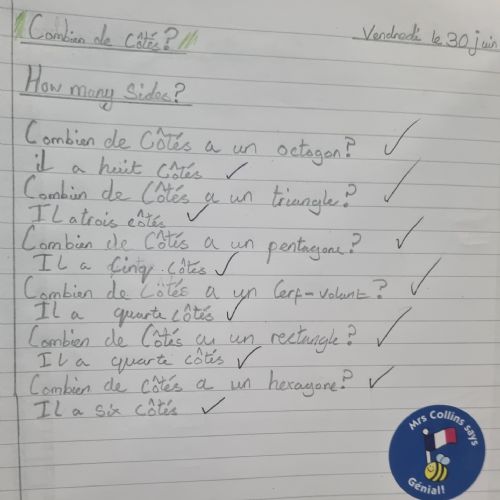 Combien de Côtés?
Vendredi le 30 juin
How many Sides?
Combien de Côtés a un octagon?
il a huit Côtés
Combien de Côtés a un triangle?
IL a trois côtés
Combien de Côtés a un pentagone?
IL a Cinq côtés
Combien de Côtés a un Cerf-volant?
IL a quarte côtés
Combien de Côtés au un rectangle?
IL a quarte côtés
Combien de côtés a un hexagone?
IL a six côtés
Mrs Collins says
Génial!